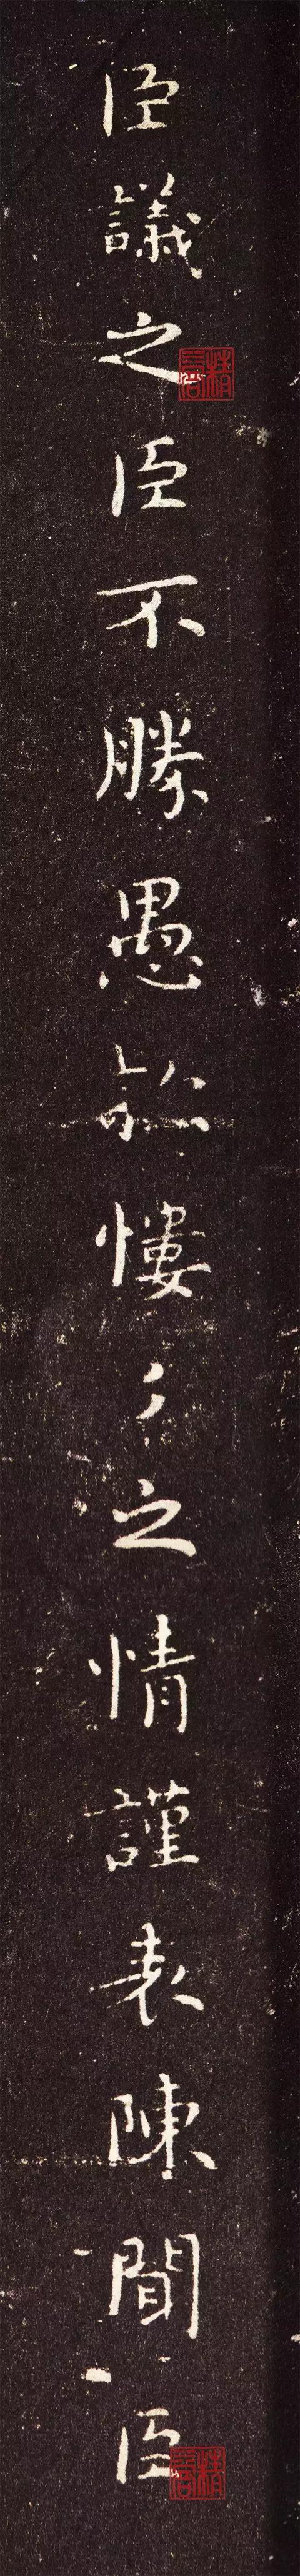 臣議之臣不勝愚欵慺〻之情謹表陳聞臣